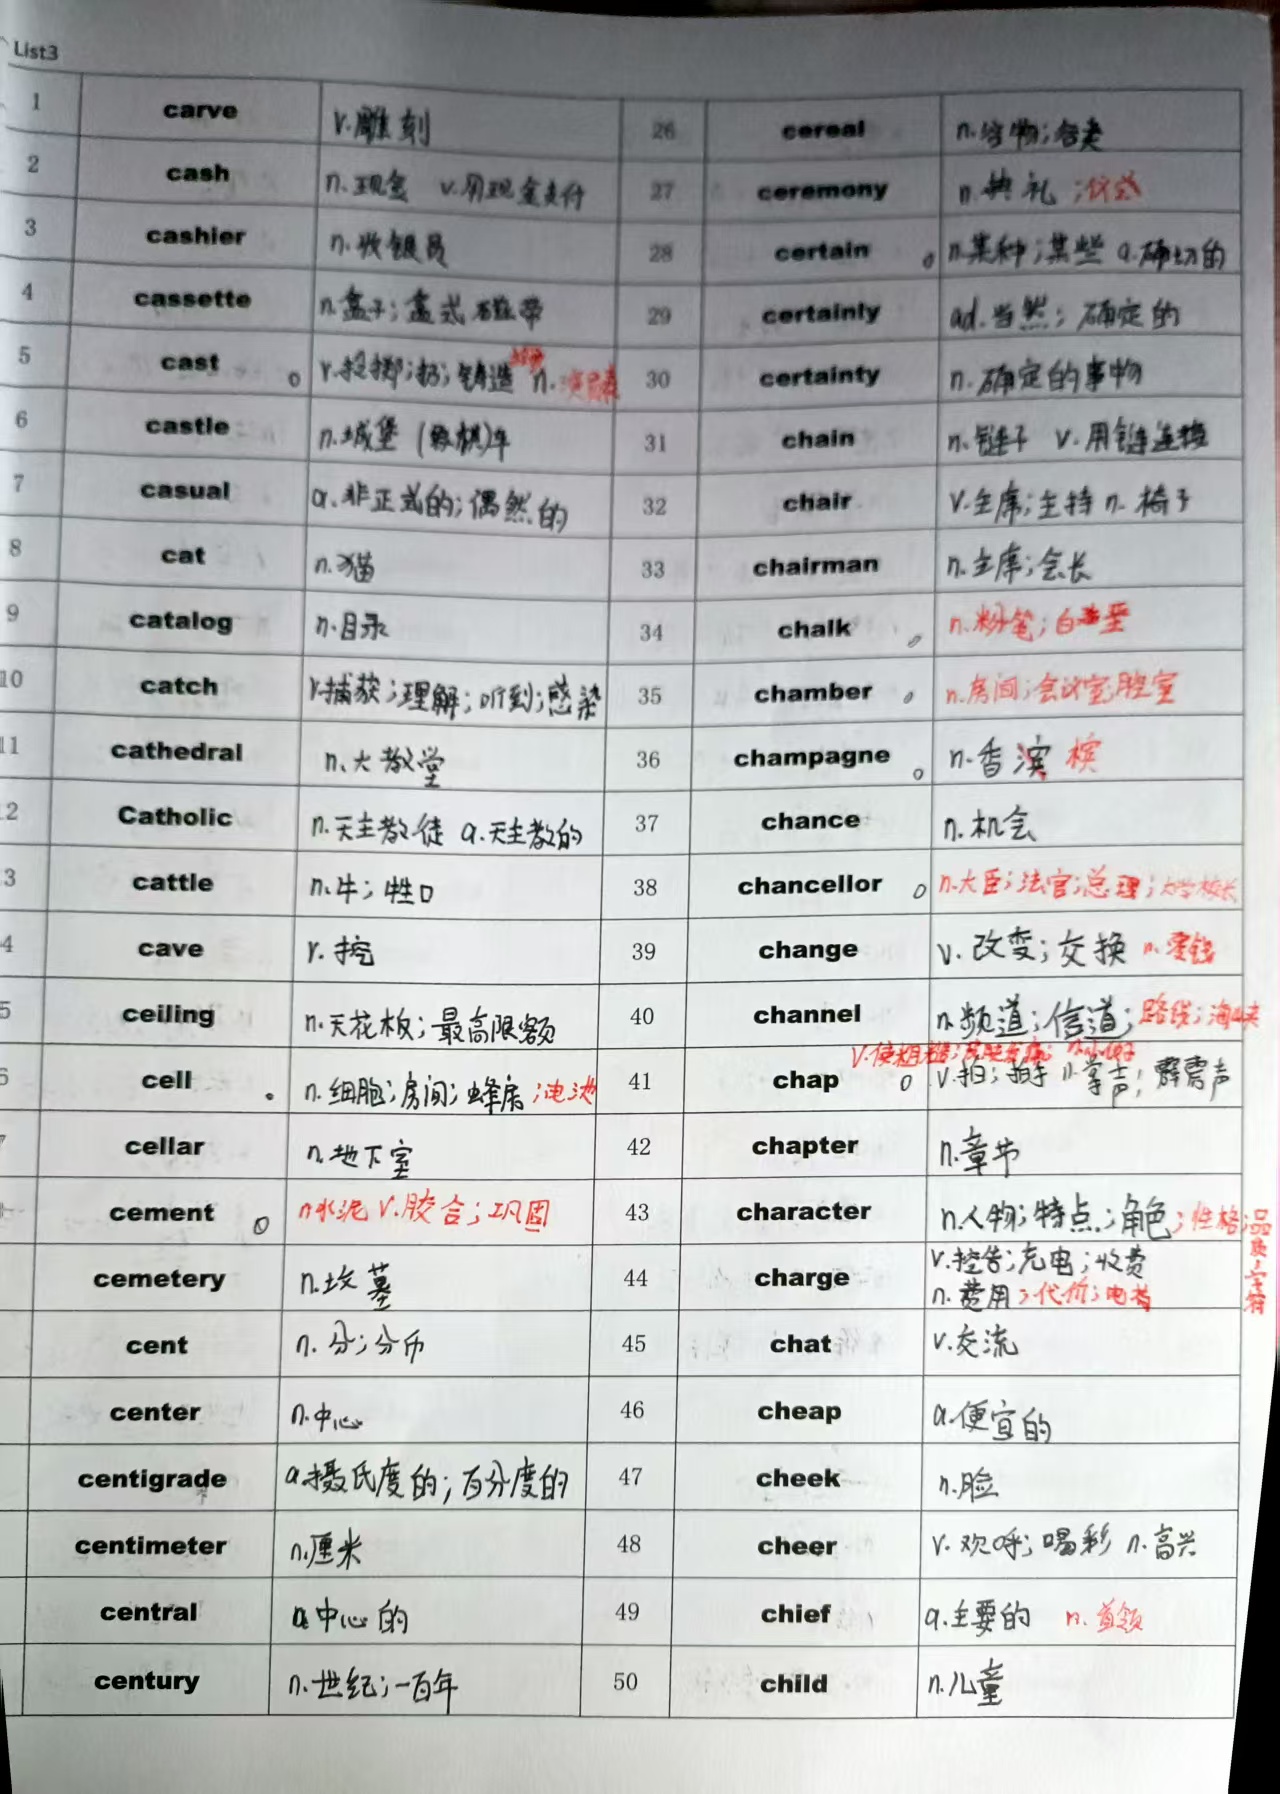 List3
1 carve v.雕刻
26 cereal n.谷物;谷类
2 cash n.现金 v.用现金支付
27 ceremony n.典礼;仪式
3 cashier n.收银员
28 certain n.某种;某些 a.确切的
4 cassette n.盒子;盒式磁带
29 certainly ad.当然;确定的
5 cast v.投掷;扔;铸造 n.演员表
30 certainty n.确定的事物
6 castle n.城堡 (象棋)车
31 chain n.链子 v.用链连接
7 casual a.非正式的;偶然的
32 chair v.主席;主持 n.椅子
8 cat n.猫
33 chairman n.主席;会长
9 catalog n.目录
34 chalk n.粉笔;白垩
10 catch v.捕获;理解;听到;感染
35 chamber n.房间;会议室;腔室
11 cathedral n.大教堂
36 champagne n.香滨 槟
2 Catholic n.天主教徒 a.天主教的
37 chance n.机会
3 cattle n.牛;牲口
38 chancellor n.大臣;法官;总理;大学校长
4 cave v.挖
39 change v.改变;交换 n.零钱
5 ceiling n.天花板;最高限额
40 channel n.频道;信道;路线;海峡
6 cell n.细胞;房间;蜂房;电池
v.使粗糙;皮肤皲裂; n.小伙子
41 chap v.拍;拍手 n.掌声;霹雳声
7 cellar n.地下室
42 chapter n.章节
cement n.水泥 v.胶合;巩固
43 character n.人物;特点;角色;性格;品质;字符
cemetery n.坟墓
44 charge v.控告;充电;收费
n.费用;代价;电荷
cent n.分;分币
45 chat v.交流
center n.中心
46 cheap a.便宜的
centigrade a.摄氏度的;百分度的
47 cheek n.脸
centimeter n.厘米
48 cheer v.欢呼;喝彩 n.高兴
central a.中心的
49 chief a.主要的 n.首领
century n.世纪;一百年
50 child n.儿童